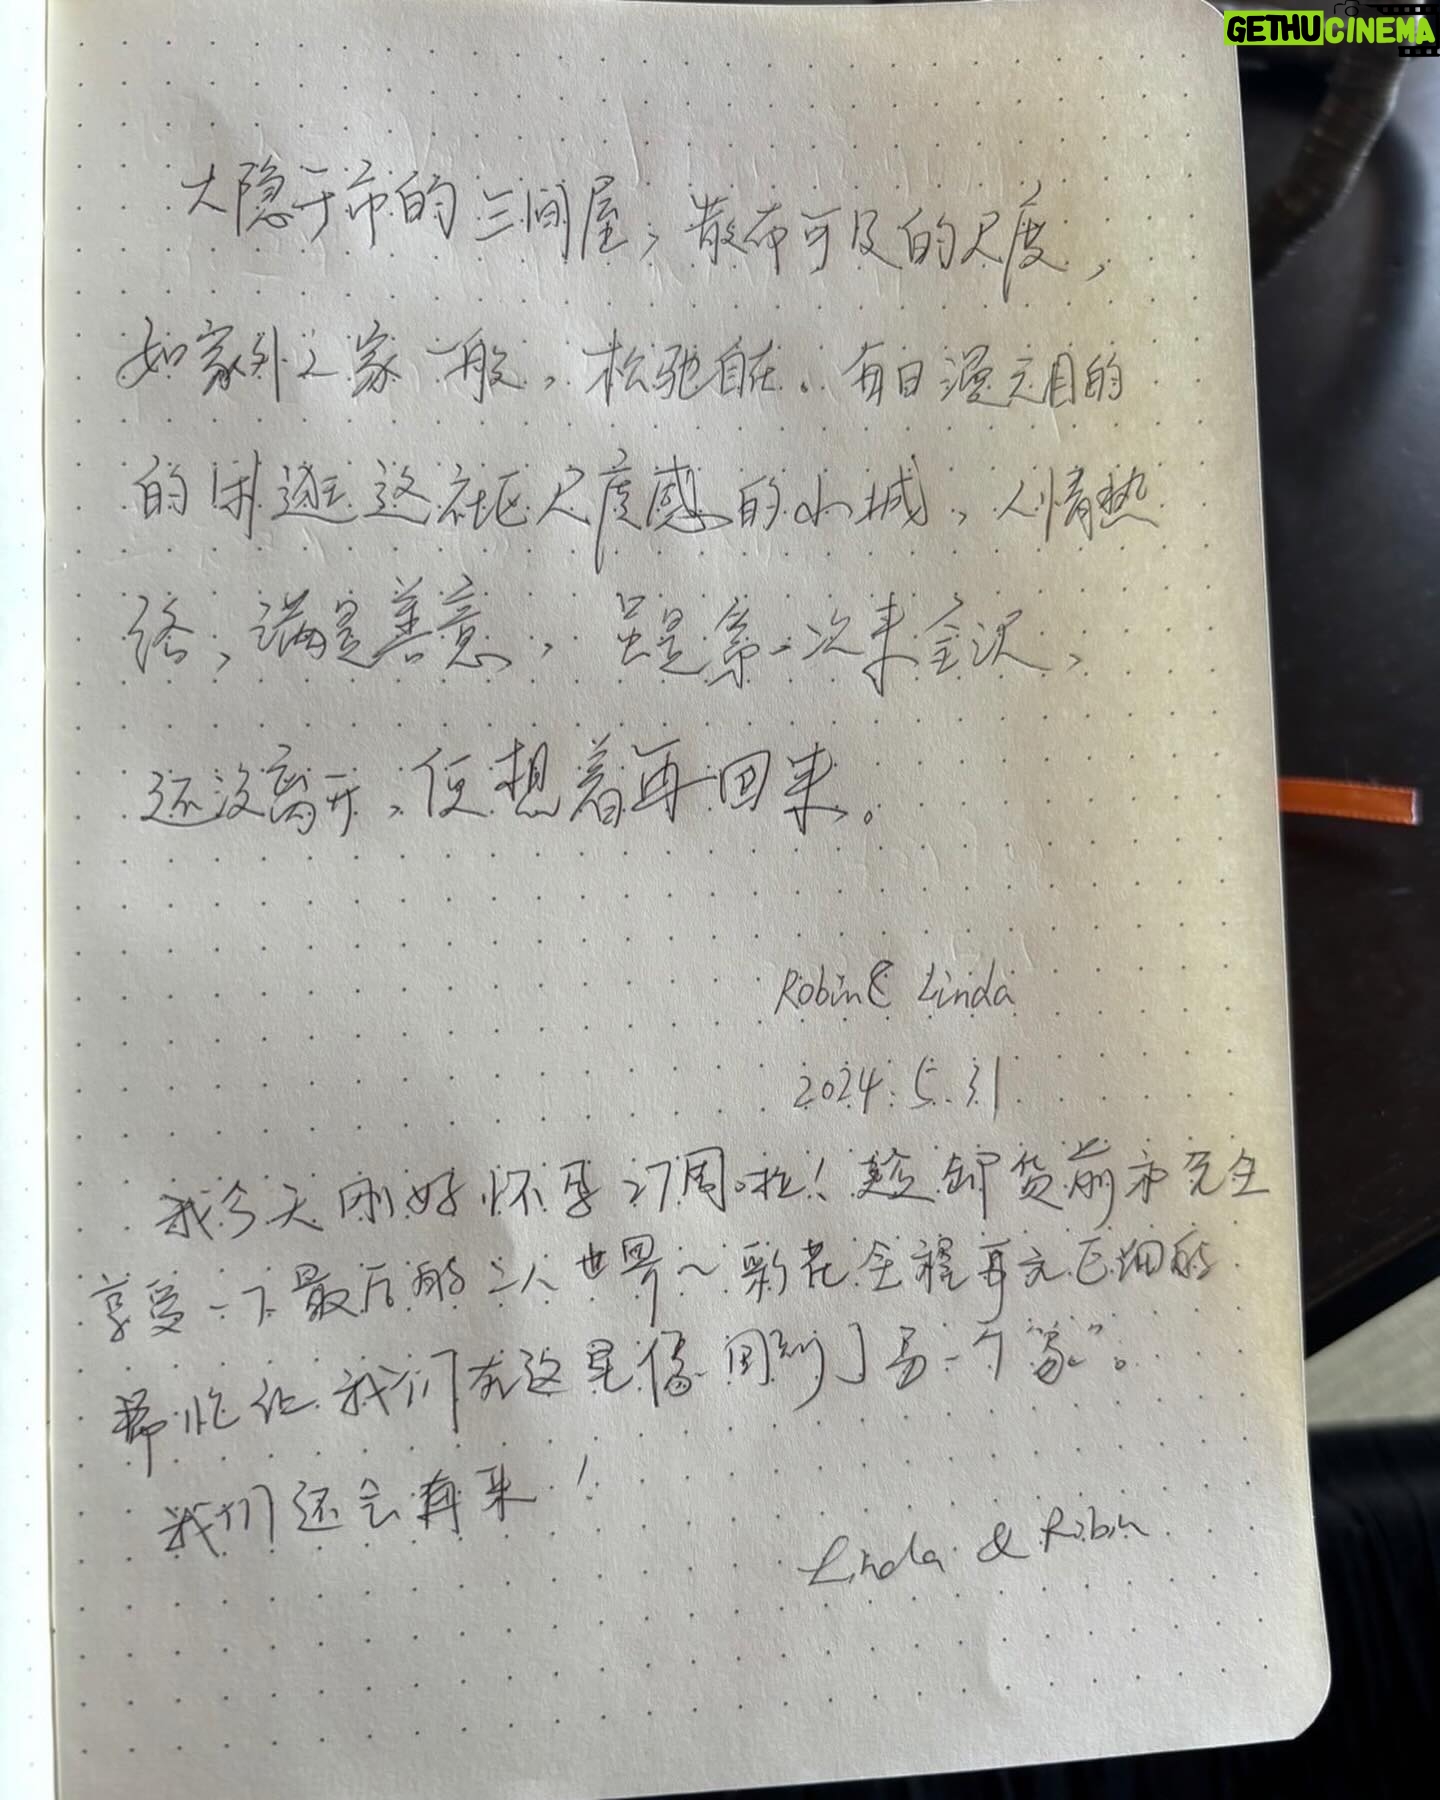 GETHUCINEMA
大隐于市的三间屋，散布可及的尺度，
如家外之家一般，松弛自在。每日漫无目的
的闲逛这社区尺度感的小城，人情热
络，满是善意，虽是第一次来金沢，
还没离开，便想着再回来。
Robin & Linda
2024.5.31
我今天刚好怀孕27周啦！趁卸货前来完全
享受一下最后的二人世界～ 全程无
帮忙让我们在这里像回到了另一个"家"。
我们还会再来！
Linda & Robin